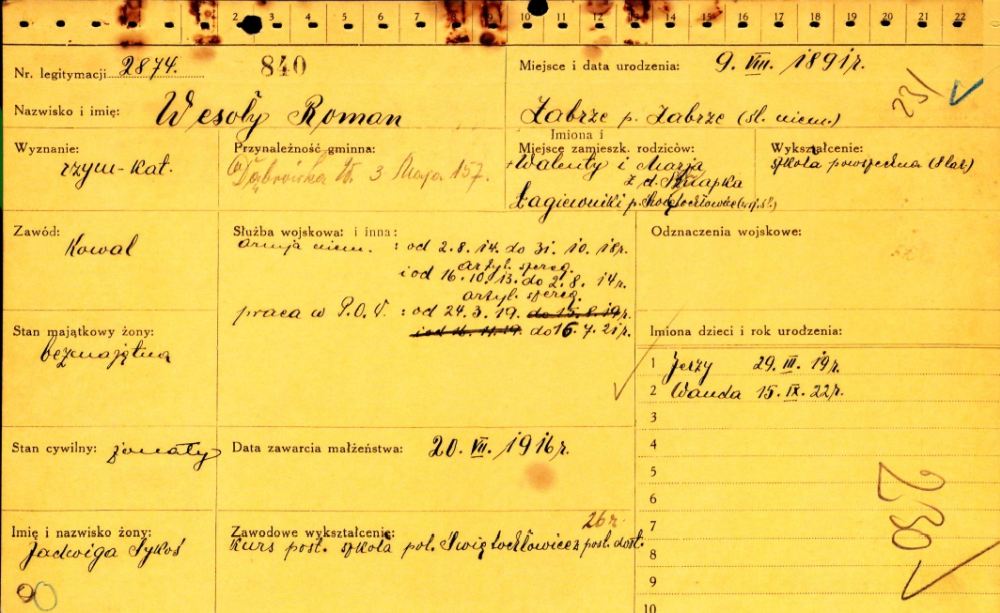 2 3 4 5 6 7 8 9 10 11 12 13 14 15 16 17 18 19 20 21 22
Nr. legitymacji 2874. 840
Miejsce i data urodzenia: 9. VIII. 1891r.
231
Nazwisko i imię: Wesoły Roman
Zabrze p. Zabrze (śl. niem.)
Wyznanie:
rzym-kat.
Przynależność gminna:
Dąbrówka 3 Maja 157.
Imiona i
Miejsce zamieszk. rodziców:
Walenty i Marja
z d.
Łagiewniki p.
Wykształcenie:
szkoła powszechna (8 lat)
Zawód:
Kowal
Służba wojskowa: i inna:
armja niem. : od 2.8.14. do 31. 10. 18r.
artyl.
i od 16.10.13. do 2.8. 14r.
artyl.
praca w P.O.W. : od 24.3.19. do 15.8.19r.
do 16.7.21r.
Odznaczenia wojskowe:
Stan majątkowy żony:
bezmajętna
Imiona dzieci i rok urodzenia:
1 Jerzy 29. III. 19r.
2 Wanda 15. IX. 22r.
3
4
5
6
7
8
9
10
Stan cywilny: żonaty
Data zawarcia małżeństwa: 20. VII. 1916r.
230
Imię i nazwisko żony:
Jadwiga
Zawodowe wykształcenie:
26r.
Kurs post. szkoła pol. post.
90